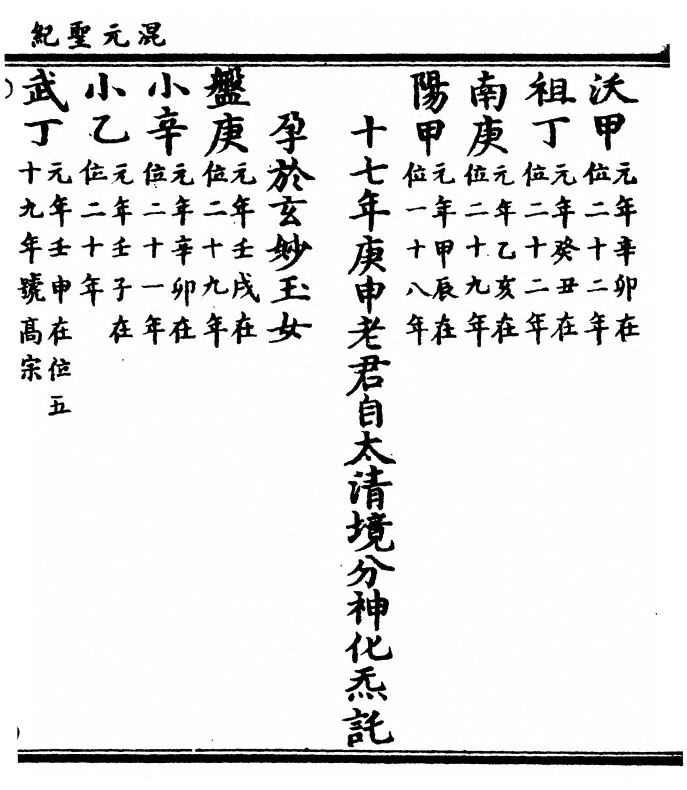 混元聖紀
沃甲元年辛卯在位二十二年
祖丁元年癸丑在位二十二年
南庚元年乙亥在位二十九年
陽甲元年甲辰在位一十八年
十七年庚申老君自太清境分神化炁託
孕於玄妙玉女
盤庚元年壬戌在位二十九年
小辛元年辛卯在位二十一年
小乙元年壬子在位二十年
武丁元年壬申在位五十九年號高宗